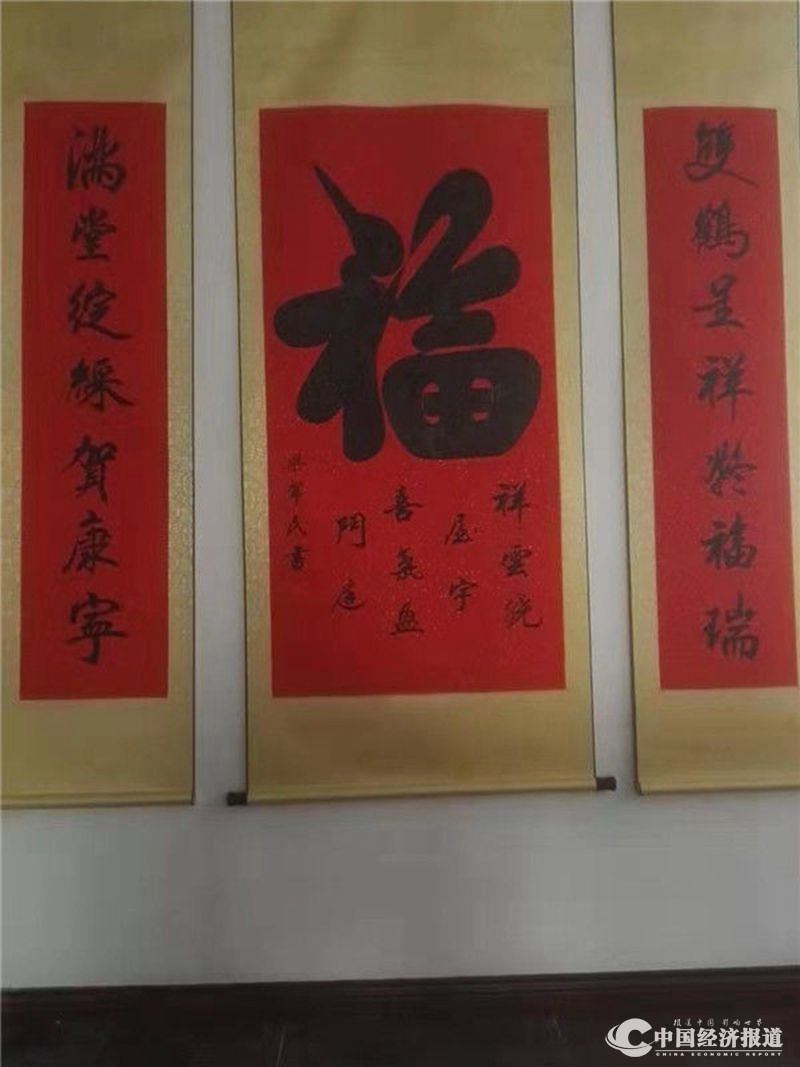 雙鶴呈祥福瑞
福
祥雲繞
屋宇
喜氣盈
門庭
民書
滿堂綻綵賀康寧
报道中国 影响世界
中国经济报道
CHINA ECONOMIC REPORT